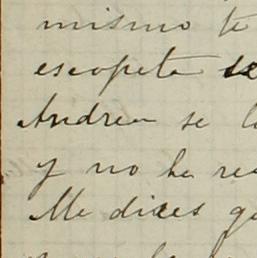 mismo te
escopeta se
Andrea se l
y no he re
Me dices q